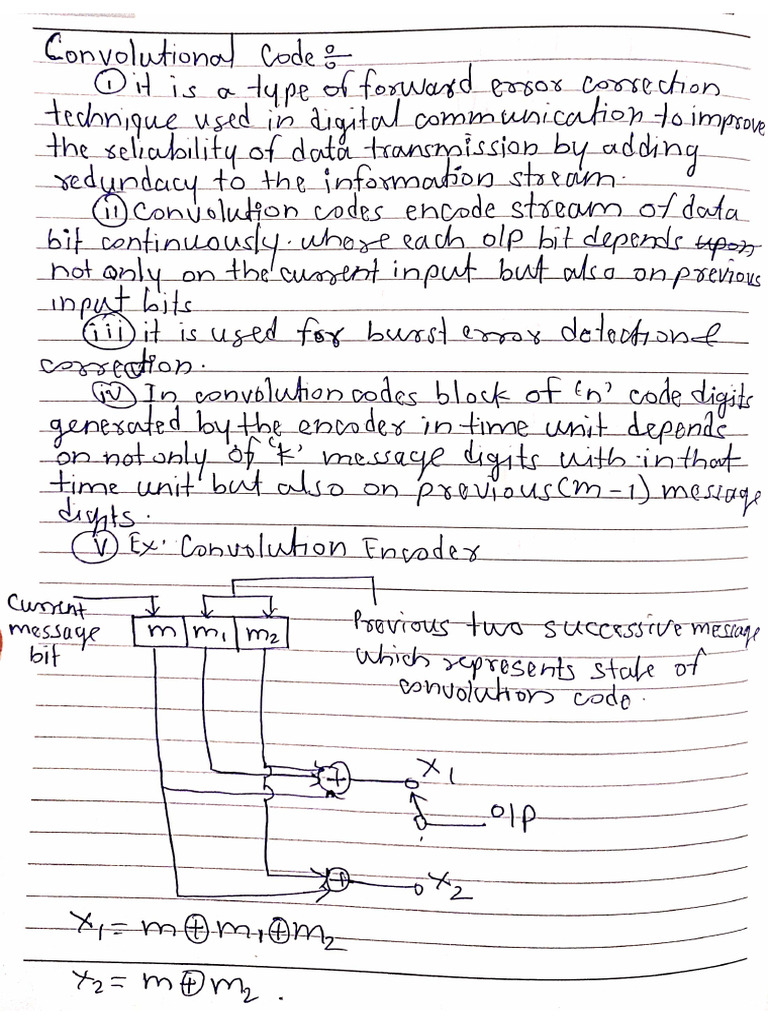 Convolutional Code :-
(i) it is a type of forward error correction
technique used in digital communication to improve
the reliability of data transmission by adding
redundacy to the information stream.
(ii) Convolution codes encode stream of data
bit continuously. where each o/p bit depends upon
not only on the current input but also on previous
input bits
(iii) it is used for burst error detection &
correction.
(iv) In convolution codes block of 'n' code digits
generated by the encoder in time unit depends
on not only of 'k' message digits with in that
time unit but also on previous (m-1) message
digits.
(v) Ex: Convolution Encoder
Current
message
bit
m m₁ m₂
Previous two successive message
which represents state of
convolution code.
+ X₁
o/p
+ X₂
X₁ = m ⊕ m₁ ⊕ m₂
X₂ = m ⊕ m₂.